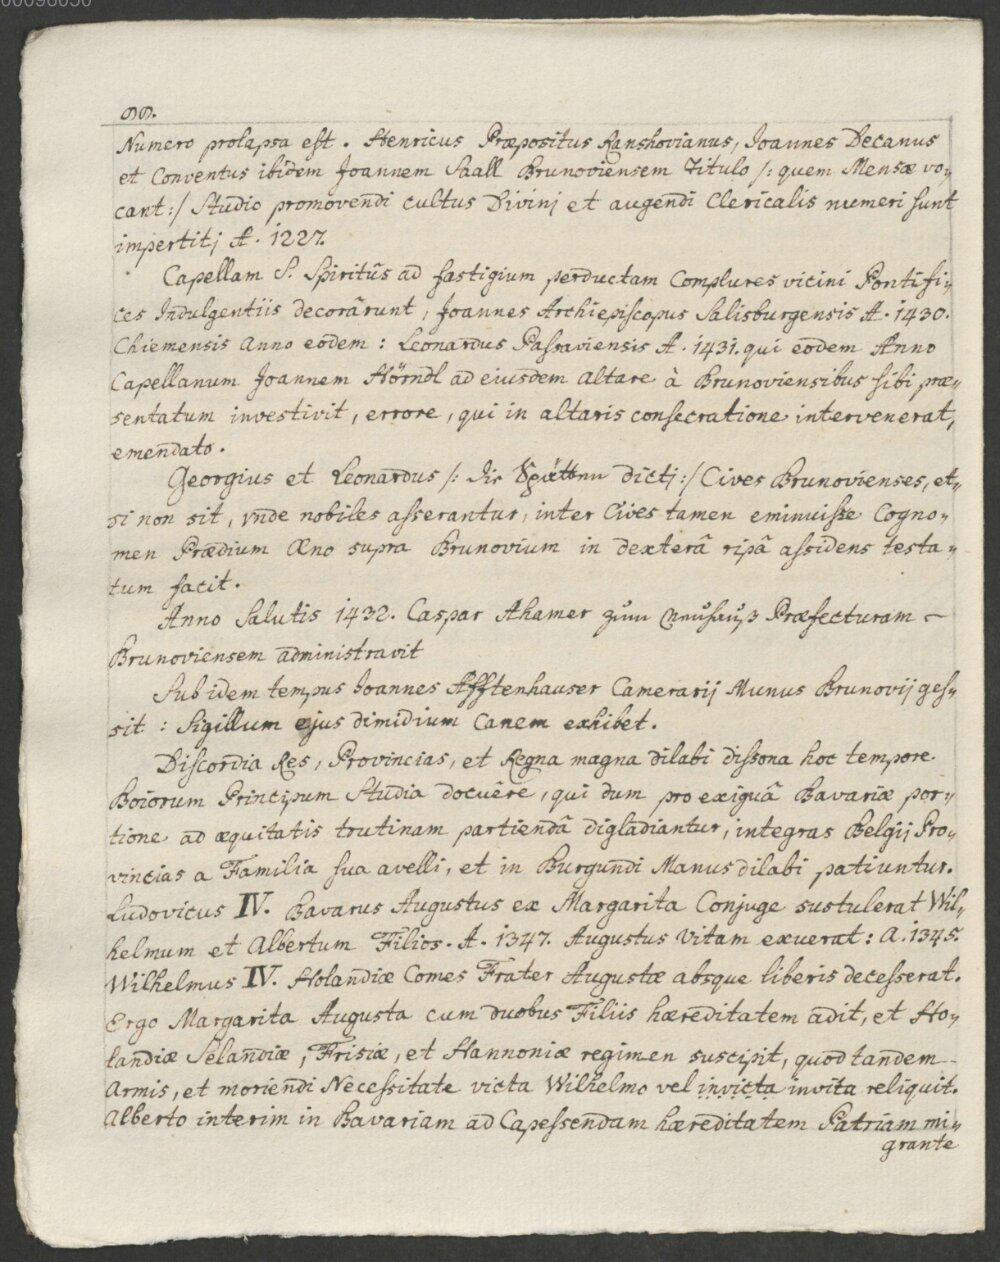 99.
Numero prolapsa est. Henricus Præpositus Ranshovianus, Joannes Decanus
et Conventus ibidem Joannem Saall Brunoviensem Titulo /: quem Mensæ vo„
cant :/ Studio promovendi cultus Divinj et augendi Clericalis numeri sunt
impertitj A. 1227.
Capellam S. Spiritûs ad fastigium perductam Complures vicini Pontifi„
ces Indulgentiis decorârunt, Joannes Archiepiscopus Salisburgensis A. 1430.
Chiemensis Anno eodem: Leonardus Passaviensis A. 1431. qui eodem Anno
Capellanum Joannem Hörndl ad eiusdem altare à Brunoviensibus sibi præ„
sentatum investivit, errore, qui in altaris consecratione intervenerat,
emendato.
Georgius et Leonardus /: Die dictj :/ Cives Brunovienses, et„
si non sit, vnde nobiles asserantur, inter Cives tamen eminuisse Cogno„
men Prædium Æno supra Brunovium in dexterâ ripâ assidens testa„
tum facit.
Anno Salutis 1432. Caspar Ahamer zum Neuhauß Præfecturam
Brunoviensem administravit
Sub idem tempus Joannes Afftenhauser Camerarij Munus Brunovij ges„
sit : Sigillum ejus dimidium Canem exhibet.
Discordia Res, Provincias, et Regna magna dilabi dissona hoc tempore
Boiorum Principum Studia docuêre, qui dum pro exiguâ Bavariæ por„
tione ad æquitatis trutinam partiendâ digladiantur, integras Belgij Pro„
vincias a Familia sua avelli, et in Burgundi Manus dilabi patiuntur.
Ludovicus IV. Bavarus Augustus ex Margarita Conjuge sustulerat Wil„
helmum et Albertum Filios. A. 1347. Augustus Vitam exuerat : A. 1345.
Wilhelmus IV. Holandiæ Comes Frater Augustæ absque liberis decesserat.
Ergo Margarita Augusta cum duobus Filiis hæreditatem adit, et Ho„
landiæ Selandiæ, Frisiæ, et Hannoniæ regimen suscipit, quod tandem
Armis, et moriendi Necessitate victa Wilhelmo vel invicta invita reliquit.
Alberto interim in Bavariam ad Capessendam hæreditatem Patriam mi„
grante